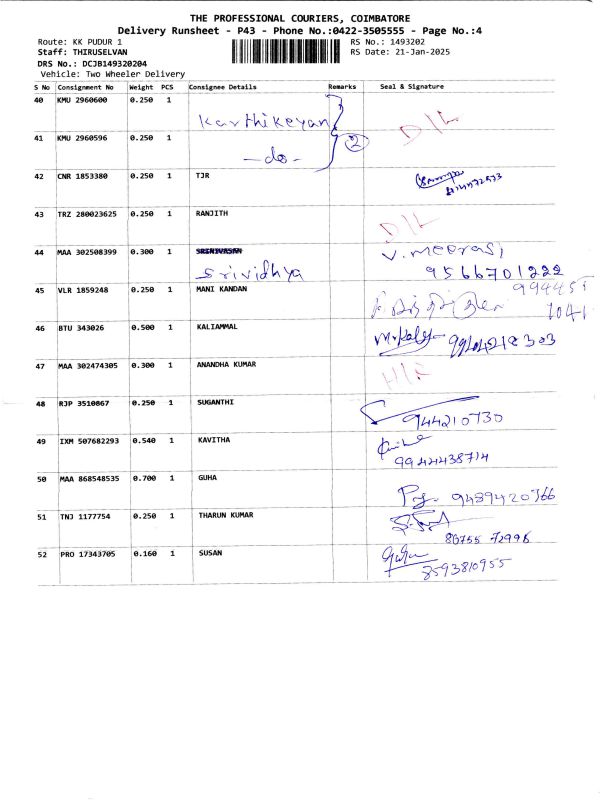 THE PROFESSIONAL COURIERS, COIMBATORE
Delivery Runsheet - P43 - Phone No.:0422-3505555 - Page No.:4
Route: KK PUDUR 1 RS No.: 1493202
Staff: THIRUSELVAN RS Date: 21-Jan-2025
DRS No.: DCJB149320204
Vehicle: Two Wheeler Delivery
S No Consignment No Weight PCS Consignee Details Remarks Seal & Signature
40 KMU 2960600 0.250 1 Karthikeyan
41 KMU 2960596 0.250 1 -do- 2 D/L
42 CNR 1853380 0.250 1 TJR
43 TRZ 280023625 0.250 1 RANJITH D/L
44 MAA 302508399 0.300 1 SRINIVASAN V.meerasi
Srividhya 9566701222
45 VLR 1859248 0.250 1 MANI KANDAN 994451
7041
46 BTU 343026 0.500 1 KALIAMMAL
47 MAA 302474305 0.300 1 ANANDHA KUMAR
48 RJP 3510867 0.250 1 SUGANTHI 944210730
49 IXM 507682293 0.540 1 KAVITHA
9944438714
50 MAA 868548535 0.700 1 GUHA 9489420766
51 TNJ 1177754 0.250 1 THARUN KUMAR
86755 72996
52 PRO 17343705 0.160 1 SUSAN
8593810955